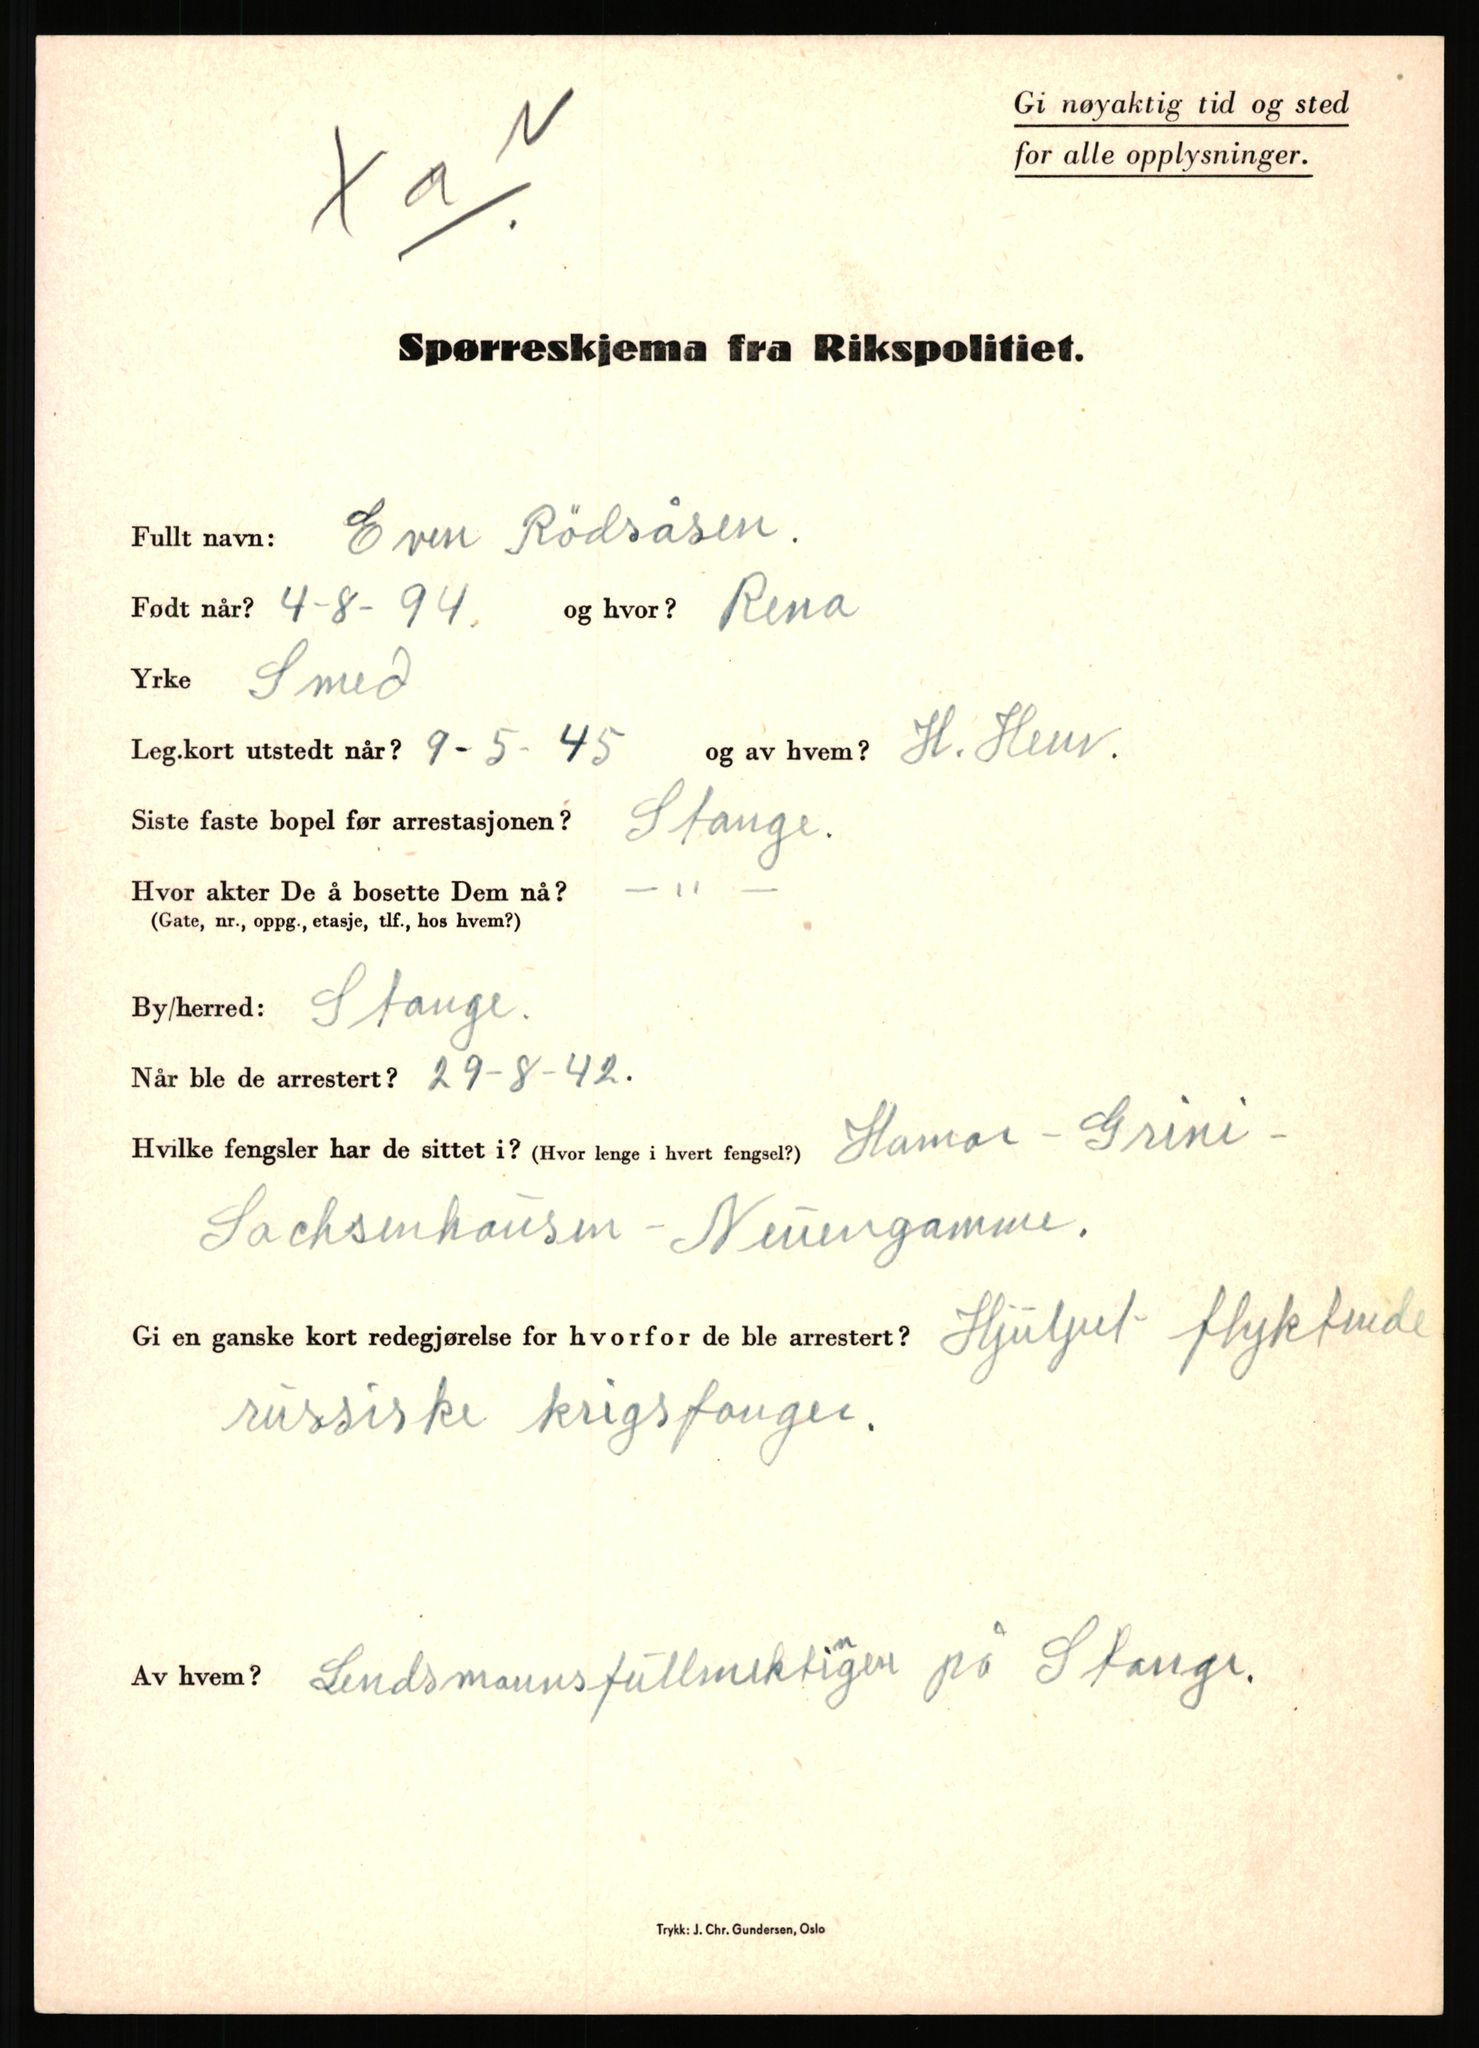 Gi nøyaktig tid og sted
for alle opplysninger.
X a N
Spørreskjema fra Rikspolitiet.
Fullt navn: Even Rödsåsen.
Født når? 4-8-94. og hvor? Rena
Yrke Smed
Leg.kort utstedt når? 9-5-45 og av hvem? H. Heuv.
Siste faste bopel før arrestasjonen? Stange.
Hvor akter De å bosette Dem nå? — " —
(Gate, nr., oppg., etasje, tlf., hos hvem?)
By/herred: Stange.
Når ble de arrestert? 29-8-42.
Hvilke fengsler har de sittet i? (Hvor lenge i hvert fengsel?) Hamar - Grini -
Sachsenhausen - Neuengamme.
Gi en ganske kort redegjørelse for hvorfor de ble arrestert? Hjulpet flyktende
russiske krigsfanger.
Av hvem? Lendsmannsfullmektingen på Stange.
Trykk: J. Chr. Gundersen, Oslo